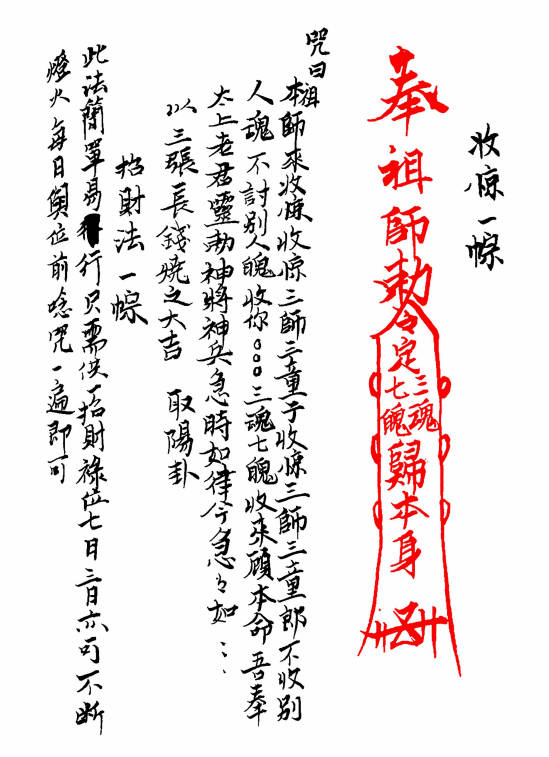 收惊一宗
奉祖師勅令定三魂七魄歸本身
咒曰
本祖師來收惊收惊三師三童子收惊三師三童郎不收別
人魂不討別人魄收你ooo三魂七魄收來顧本命吾奉
太上老君靈勅神將神兵急時如律令急々如…
以三張長錢燒之大吉 取陽卦
招財法一宗
此法簡單易行只需供一招財祿位七日三日亦可不斷
燈火每日與位前唸咒一遍即可